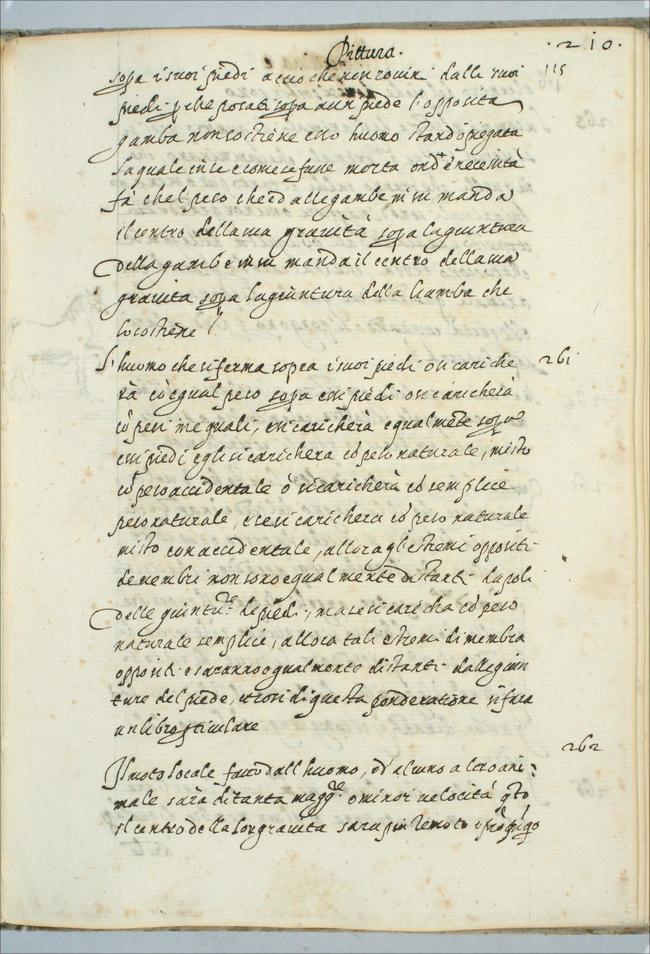 Pittura.
·210·
115
sopa i suoi piedi acciò che non rovini dalli suoi
piedi p che posati sopa a un piede l'opposita
gamba non sostiene esso huomo stando piegata
laquale in se e come se fusse morta ond'è necessità
fà che'l peso che è d alle gambe in su manda
il centro della sua gravità sopa la giuntura
della gambe in su manda il centro della sua
gravita sopa la giuntura della Gamba che
lo sostiene
L'huomo che si ferma sopra i suoi piedi o si cariche
261
rà cō equal peso sopa essi piedi o si caricherà
cō pesi inequali, se si caricherà equalmēte sopa
essi piedi egli si caricherà cō peso naturale, misto
cō peso accidentale ò si caricherà cō semplice
peso naturale, e se si caricherà cō peso naturale
misto con accidentale, allora gli estremi oppositi
de membri non sono equalmente distanti da poli
delle giunt.re de piedi, ma se si caricha cō peso
naturale semplice, allora tali estremi di membra
oppositi saranno equalmente distanti dalle giun
ture del piede, e così di questa ponderatione si farà
un libro pticulare
262
Il moto locale fatto dall huomo, od' alcuno altro ani:
male sarà di tanta magg.re o minor velocità qto
il centro della lor gravita sara piu remoto o